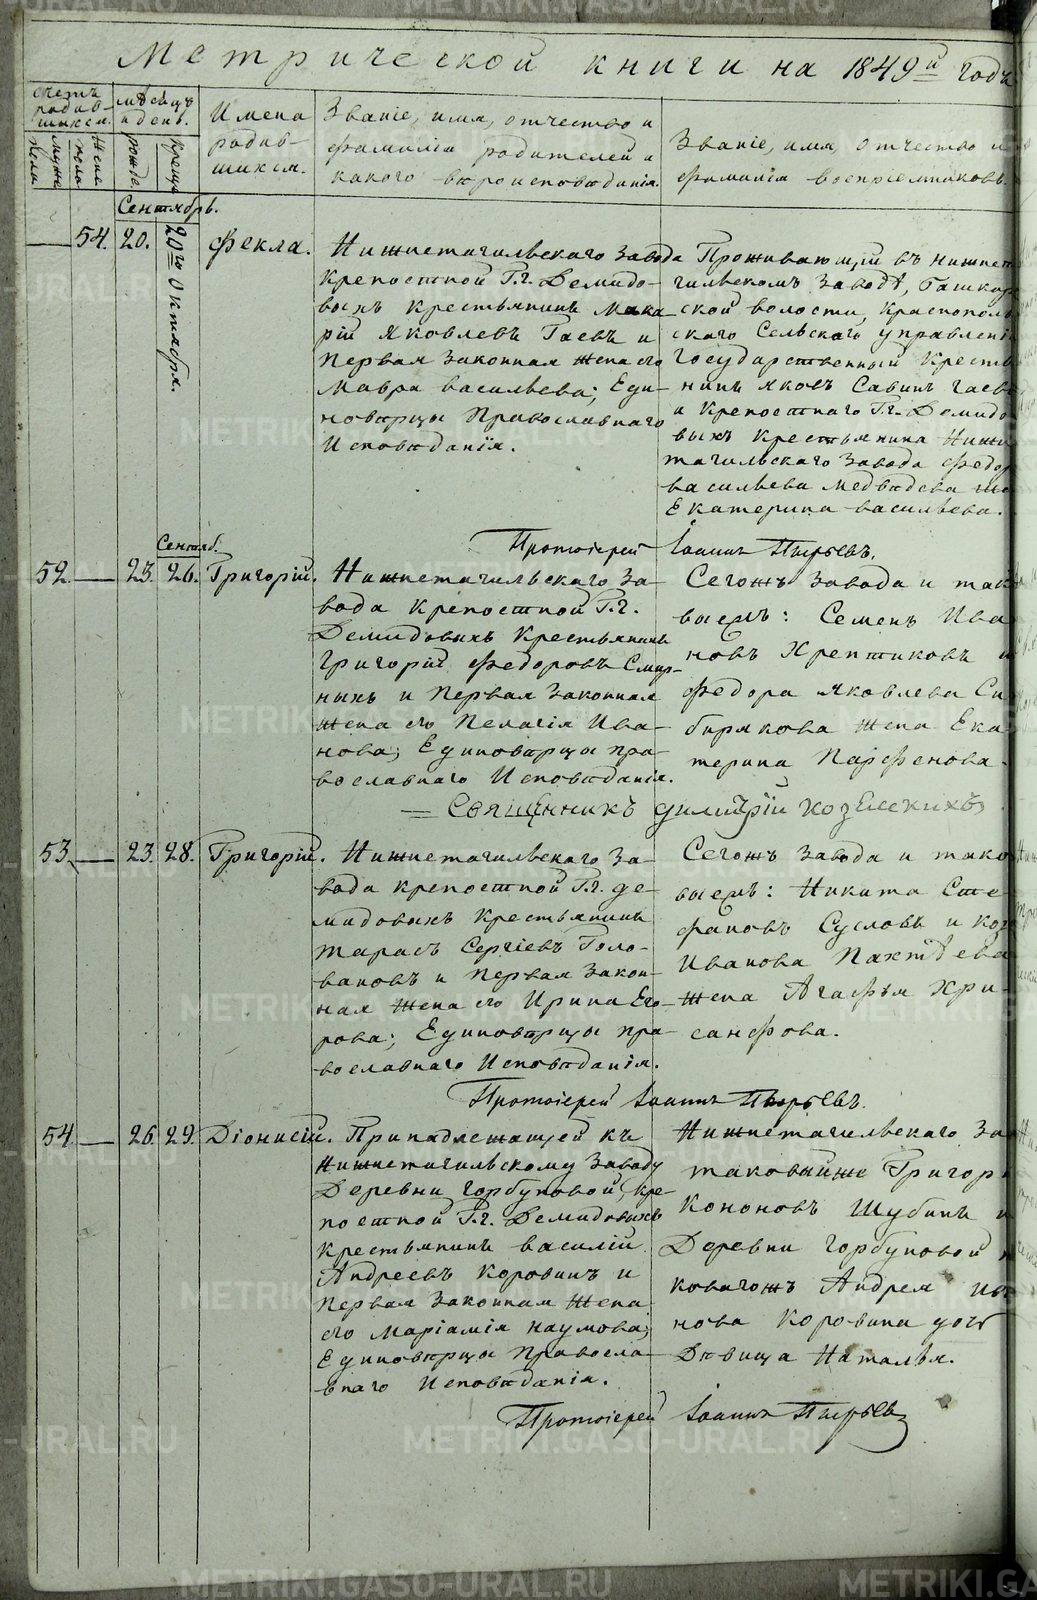 Метрической книги на 1849й годъ
счетъ родив-шихся.
мужс пола
женс пола
мѣсяцъ и день.
рожде
креще
Имена родив-шихся.
Званіе, имя, отчество и
фамилія родителей и
какого вѣроисповѣданія.
Званіе, имя, отчество и
фамилія воспріемниковъ.
Сентябрь.
54. 20. 20го октября Фекла.
Нижнетагильскаго завода
крепостной Г.г. Демидо-
выхъ крестьянинъ Мака-
рій Яковлевъ Гаевъ и
первая законная жена его
Мавра Васильева; Еди-
новѣрцы Православнаго
Исповѣданія.
Проживающій въ Нижнет
гильскомъ Заводѣ, Башкар
ской волости, Краснополь
скаго Сельскаго управлені
государственный кресть
нинъ Яковъ Савинъ Гаевъ
и крепостнаго Г.г. Демидо
выхъ крестьянина Нижн
тагильскаго Завода Федор
Васильева Медведева же
Екатерина Васильева.
Протоіерей Іоаннъ Пырьевъ.
Сентяб.
52. 23. 26. Григорій.
Нижнетагильскаго за-
вода крепостной Г.г.
Демидовыхъ крестьянинъ
Григорій Федоровъ Смир-
ныхъ и первая законная
жена его Пелагія Ива-
нова; Единовѣрцы пра-
вославнаго Исповѣданія.
Сегожъ завода и так
выежъ: Семенъ Ива
новъ Хрептиковъ и
Федора Яковлева Си
бирякова жена Ека
терина Парфенова.
Священникъ Димитрій Козельскихъ
53. 23. 28. Григорій.
Нижнетагильскаго За-
вода крепостной Г.г. де-
мидовыхъ крестьянинъ
Тарасъ Сергіевъ Голо-
вановъ и первая закон-
ная жена его Ирина Его-
рова; Единовѣрцы пра-
вославнаго Исповѣданія.
Сегожъ завода и тако
выежъ: Никита Сте-
фановъ Сусловъ и
Иванова Пахтѣева
жена Агафья Хри-
санфова.
Протоіерей Іоаннъ Пырьевъ.
54. 26. 29. Діонисій.
Принадлежащей къ
Нижнетагильскому Заводу
Деревни Горбуновой, кре-
постной Г.г. Демидовыхъ
крестьянинъ Василій
Андреевъ Коровинъ и
первая законная жена
его Маріамія Наумова;
Единовѣрцы Правосла-
внаго Исповѣданія.
Нижнетагильскаго За
таковыйже Григор
Кононовъ Шубинъ и
Деревни Горбуновой
ковагожъ Андрея
нова Коровина дочь
Дѣвица Наталья.
Протоіерей Іоаннъ Пырьевъ
METRIKI.GASO-URAL.RU